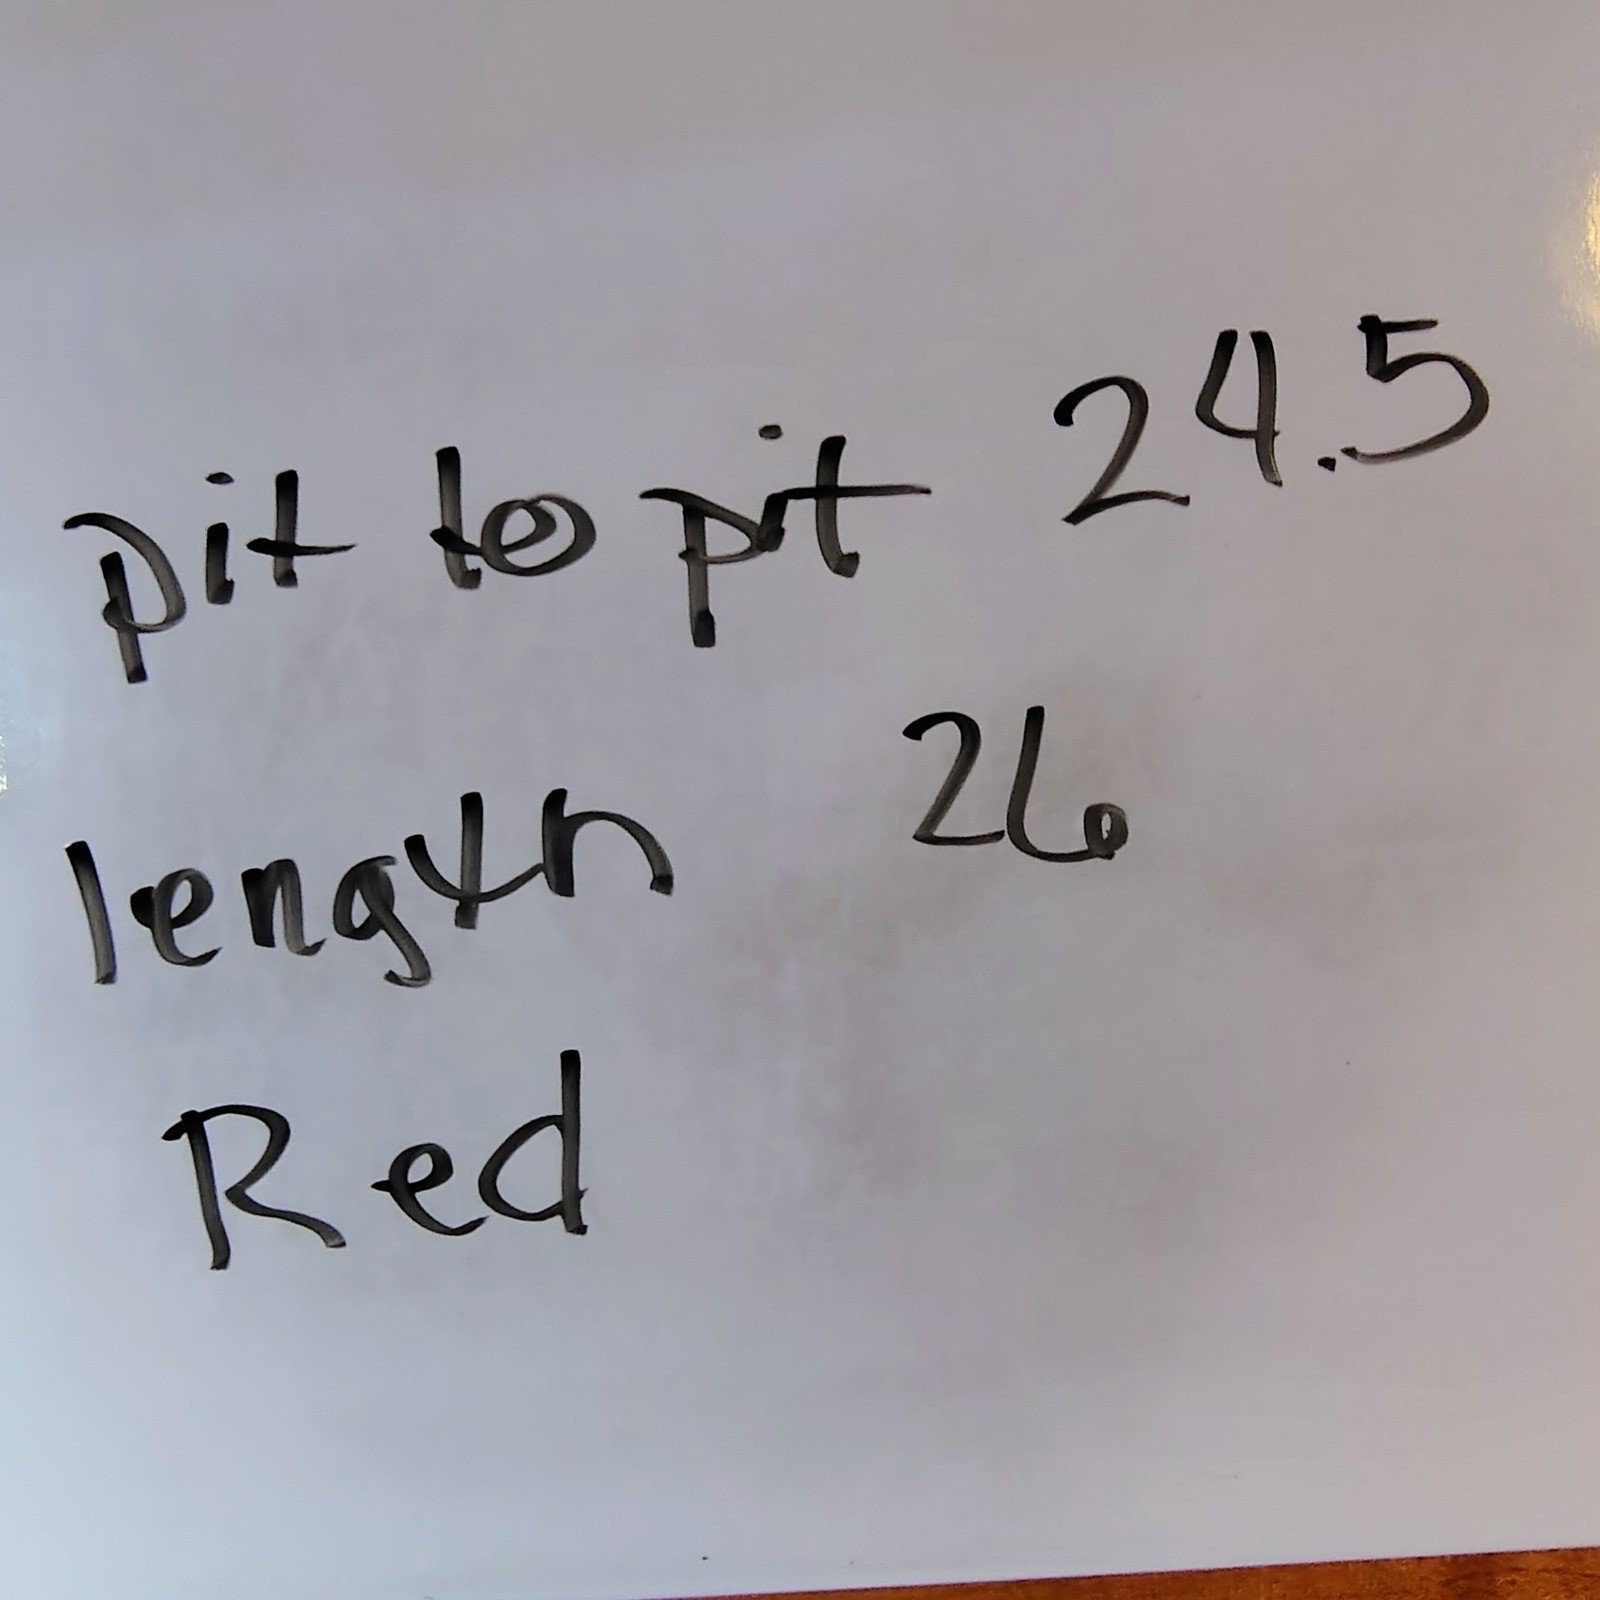 pit to pit 24.5
length 26
Red